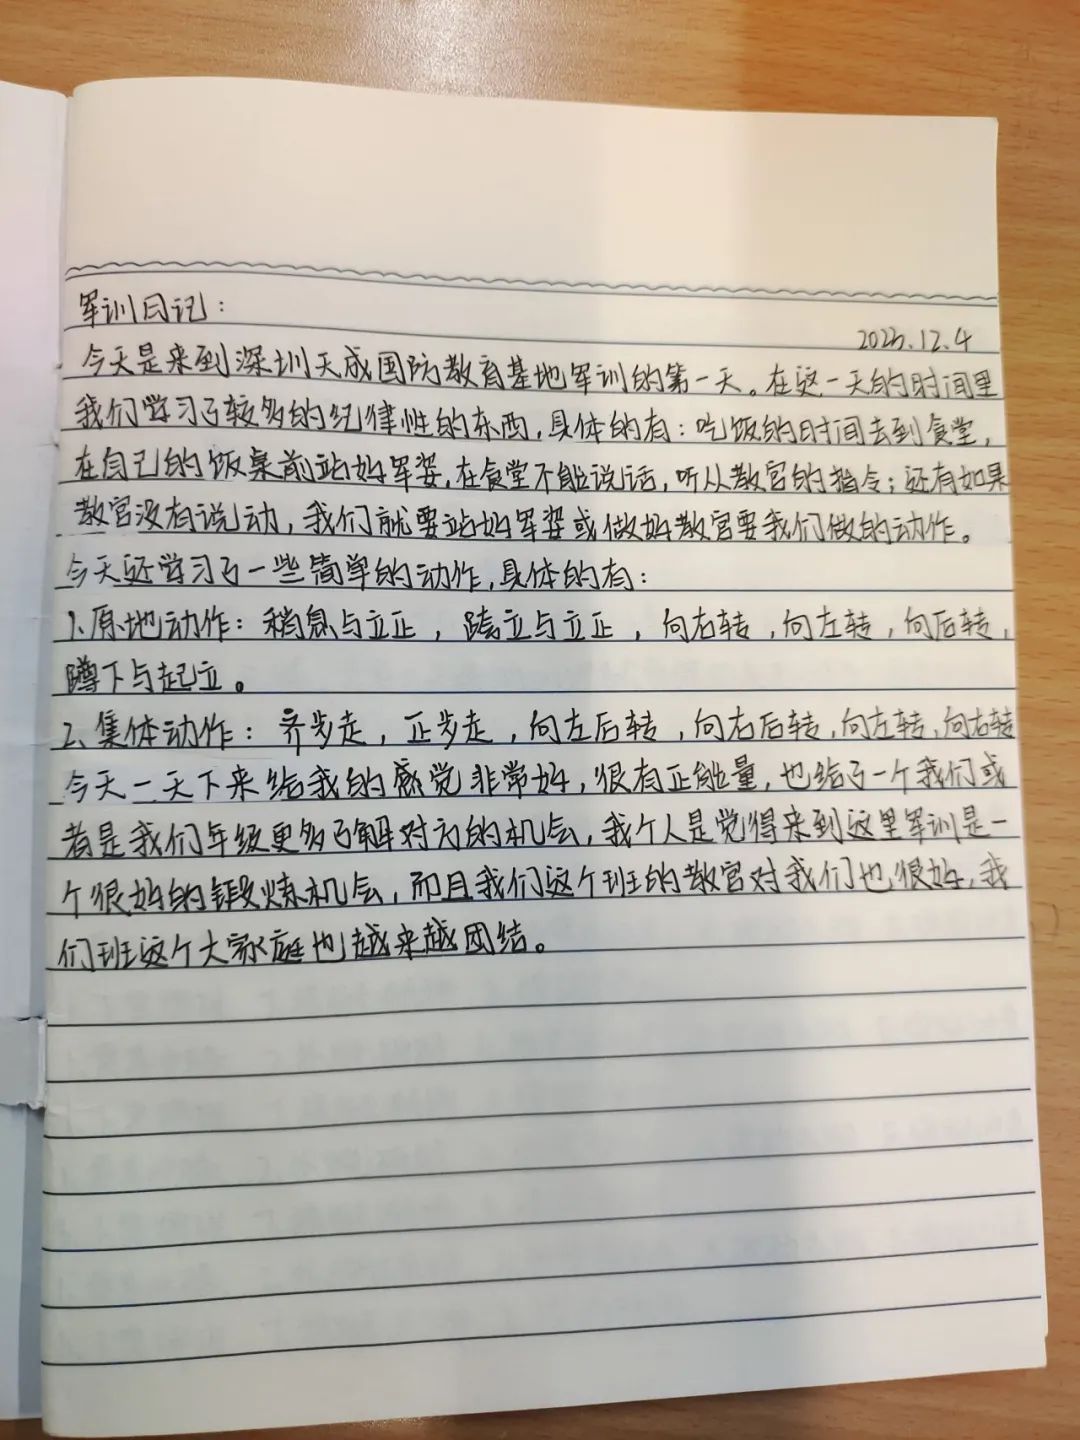 军训日记：
2023.12.4
今天是来到深圳天成国防教育基地军训的第一天。在这一天的时间里
我们学习了较多的纪律性的东西，具体的有：吃饭的时间去到食堂，
在自己的饭桌前站好军姿，在食堂不能说话，听从教官的指令；还有如果
教官没有说动，我们就要站好军姿或做好教官要我们做的动作。
今天还学习了一些简单的动作，具体的有：
1、原地动作：稍息与立正，跨立与立正，向右转，向左转，向后转，
蹲下与起立。
2、集体动作：齐步走，正步走，向左后转，向右后转，向左转、向右转
今天一天下来给我的感觉非常好，很有正能量，也给了一个我们或
者是我们年级更多了解对方的机会，我个人是觉得来到这里军训是一
个很好的锻炼机会，而且我们这个班的教官对我们也很好，我
们班这个大家庭也越来越团结。